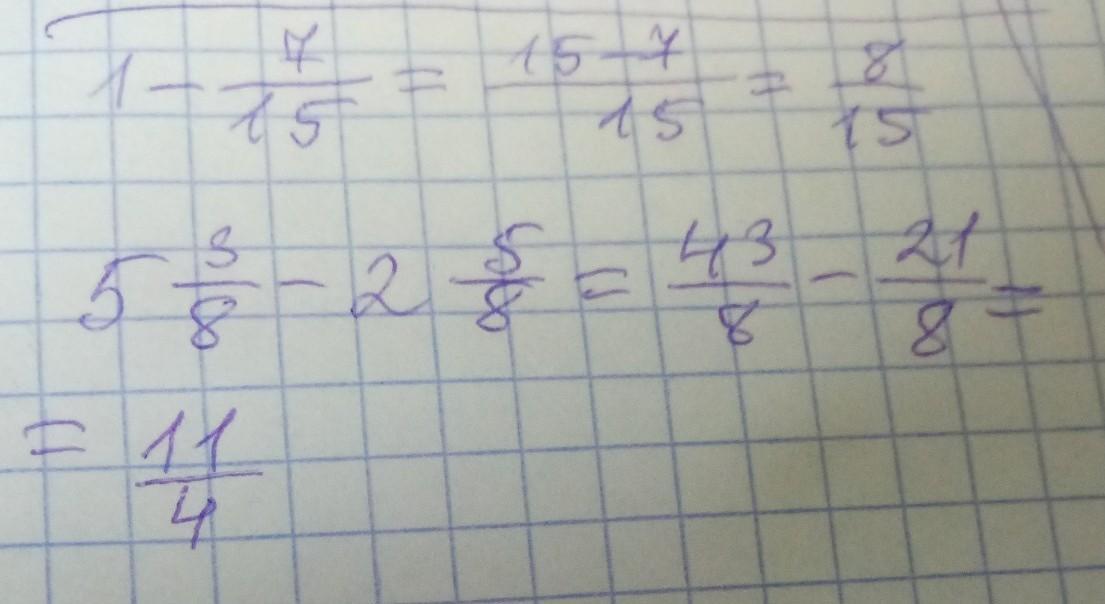 1 - 7/15 = 15-7/15 = 8/15
5 3/8 - 2 5/8 = 43/8 - 21/8 =
= 11/4